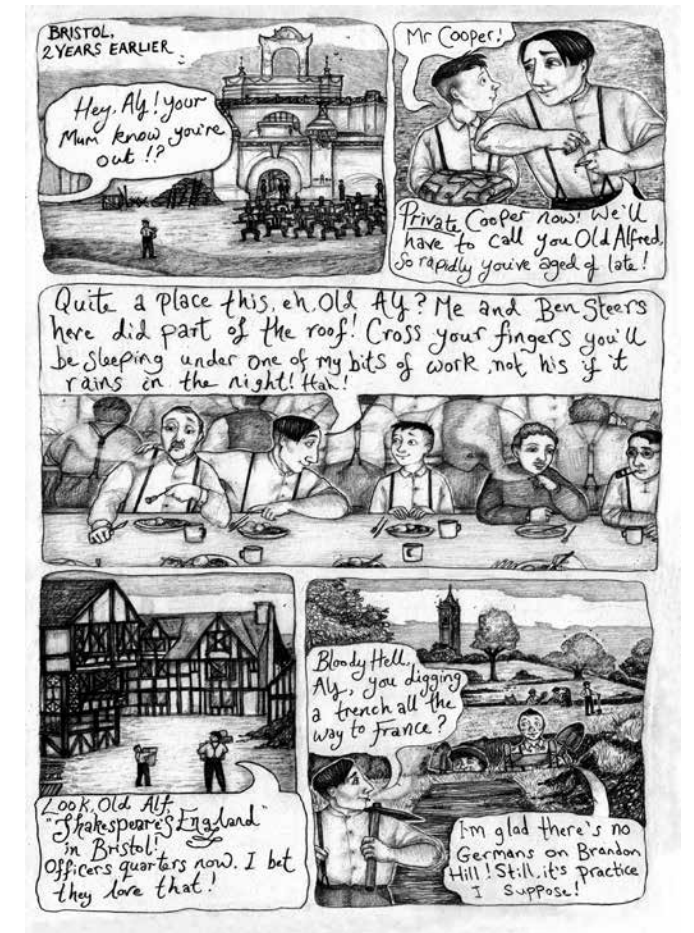 BRISTOL,
2 YEARS EARLIER
Hey, Alf! your
Mum know you're
out !?
Mr Cooper!
Private Cooper now! We'll
have to call you Old Alfred,
So rapidly you've aged of late!
Quite a place this, eh, Old Alf? Me and Ben Steers
here did part of the roof! Cross your fingers you'll
be sleeping under one of my bits of work, not his if it
rains in the night! Hah!
Look, Old Alf,
"Shakespeare's England"
in Bristol!
Officers quarters now. I bet
they love that!
Bloody Hell,
Alf, you digging
a trench all the
way to France?
I'm glad there's no
Germans on Brandon
Hill! Still, it's practice
I suppose!